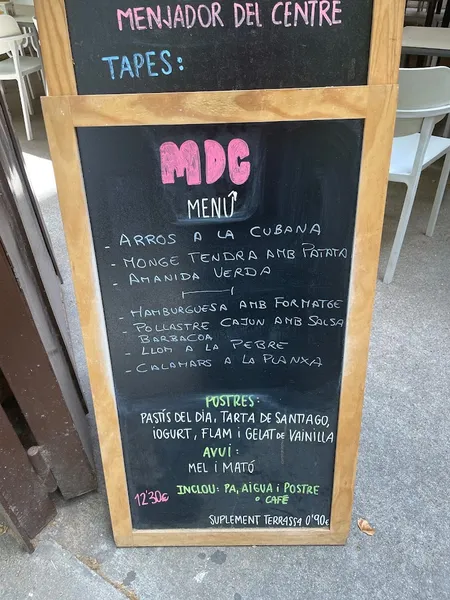 MENJADOR DEL CENTRE
TAPES:
MDC
MENÚ
- ARROS A LA CUBANA
- MONGE TENDRA AMB PATATA
- AMANIDA VERDA
- HAMBURGUESA AMB FORMATGE
- POLLASTRE CAJUN AMB SALSA
BARBACOA
- LLOM A LA PEBRE
- CALAMARS A LA PLANXA
POSTRES:
PASTÍS DEL DIA, TARTA DE SANTIAGO,
IOGURT, FLAM i GELAT DE VAINILLA
AVUÍ:
MEL i MATÓ
12'30€ INCLOU: PA, AIGUA i POSTRE
o CAFÉ
SUPLEMENT TERRASSA 0'90€